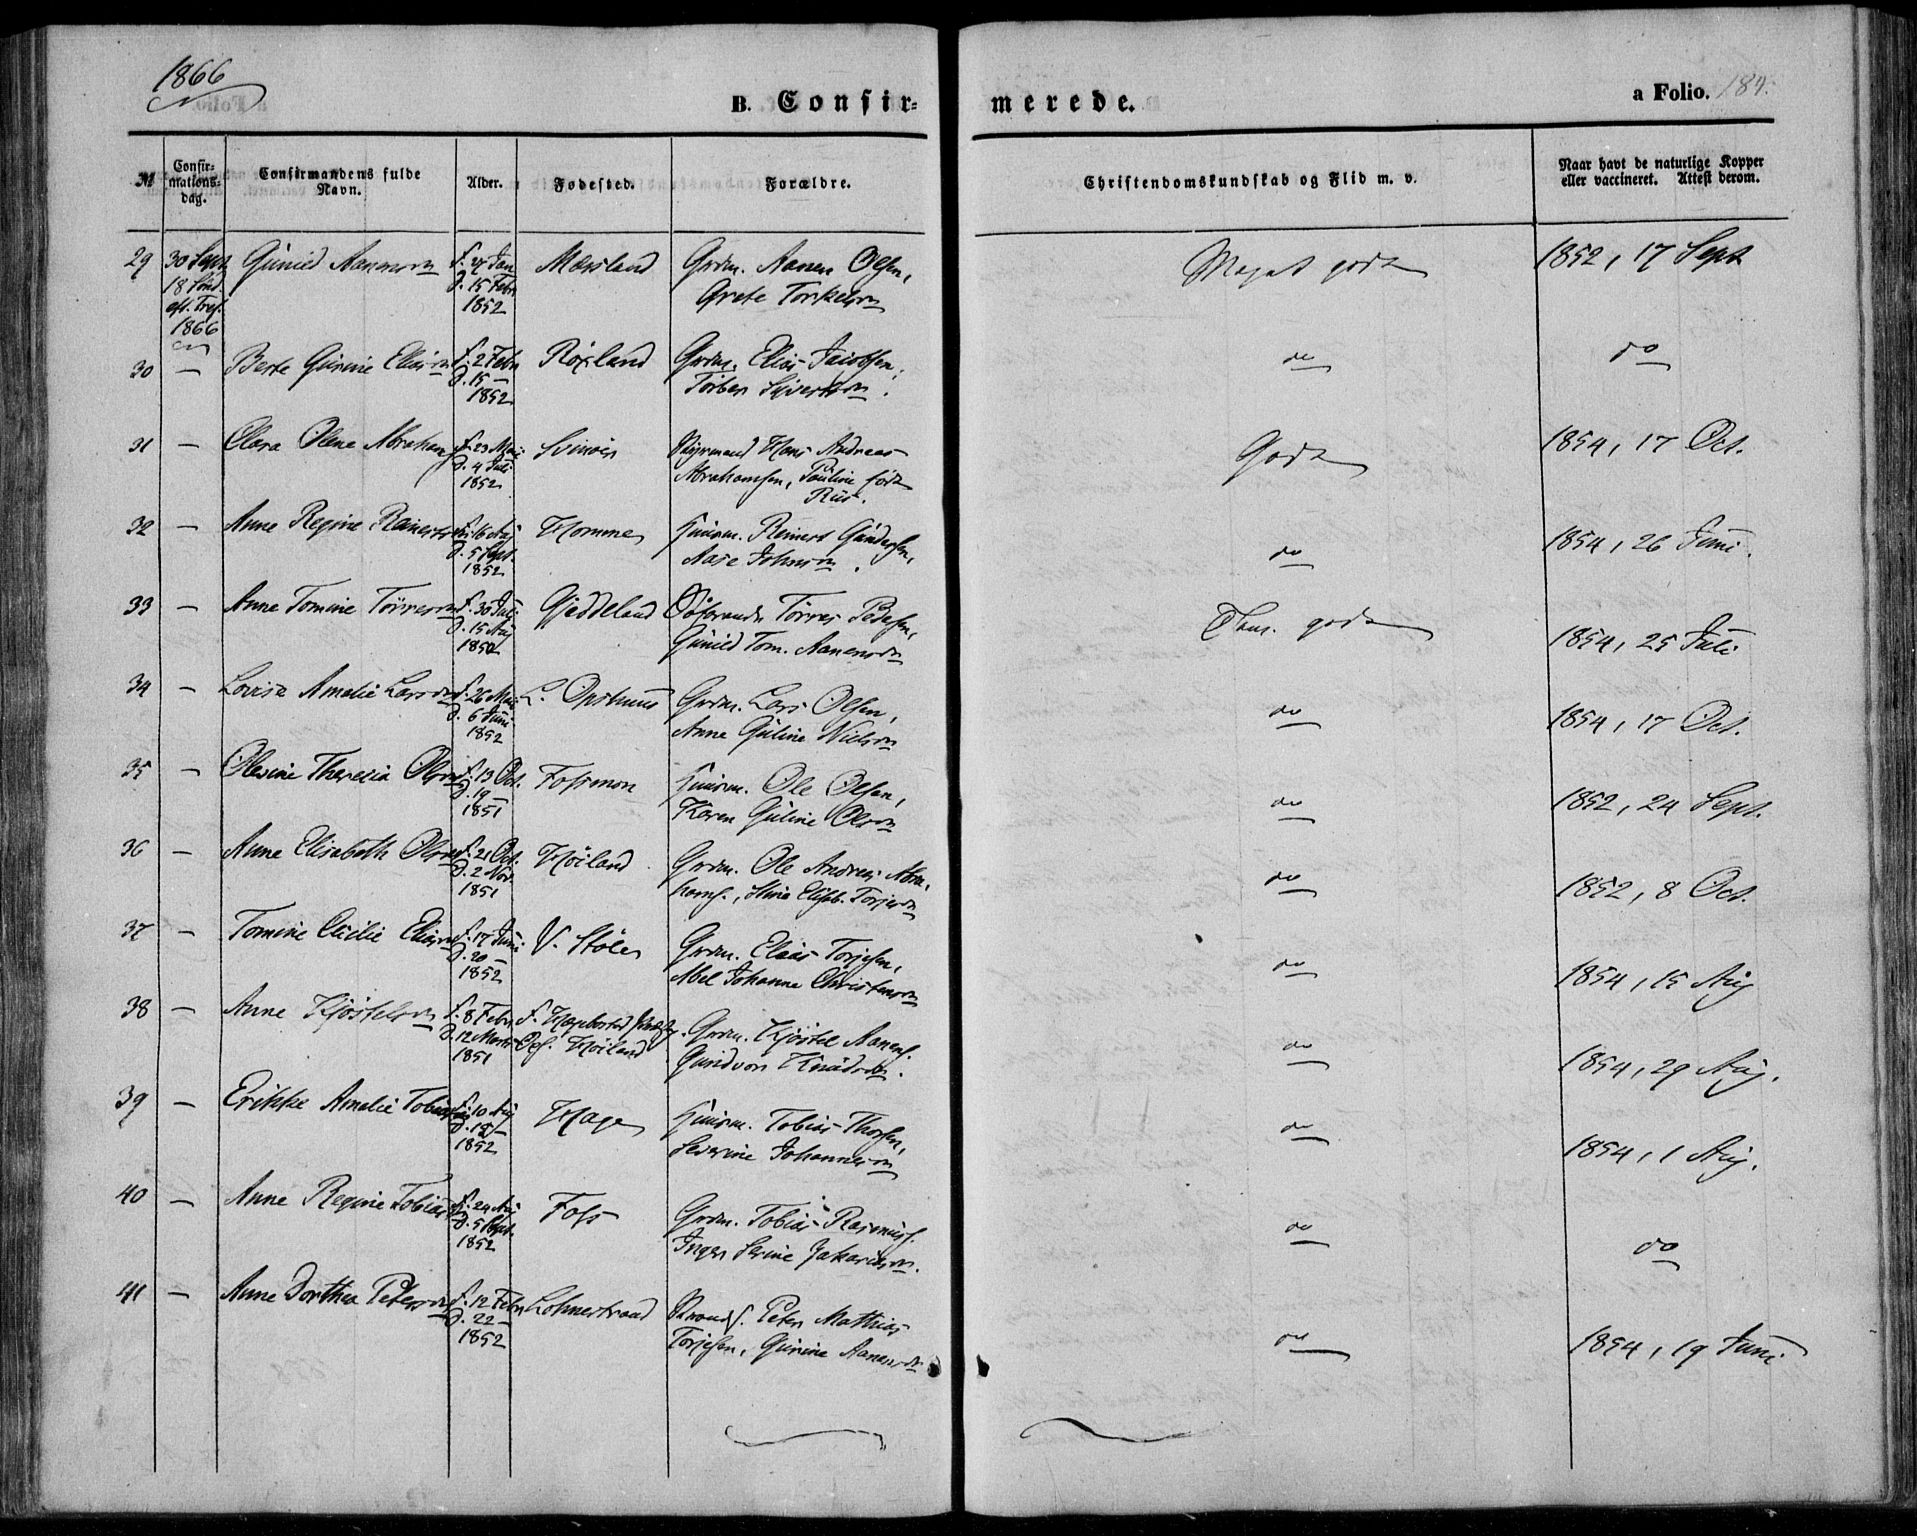 1866
B. Confir=
merede.
a Folio. 184.
№
Confir=
mations=
dag.
Confirmandens fulde
Navn.
Alder.
Fødested.
Forældre.
Christendomskundskab og Flid m. v.
Naar havt de naturlige Kopper
eller vaccineret. Attest derom.
29 30 Sept.
18 Sønd.
eft. Tref.
1866
Gunild Aanensdn
f. 27 Jan
d. 15 Febr
1852
Mæsland
Grdm. Aanen Olsen,
Grete Torkelsdn
Meget godt
1852, 17 Sept
30 —
Berte Gurine Eliasdn
f. 2 Febr
d. 15 —
1852
Røisland
Grdm. Elias Jacobsen,
Torber Sivertsdn.
do
do
31 —
Clara Olene Abrahams
f. 23 Mai
d. 4 Juli
1852
Svinøer
Styrmand Hans Andreas
Abrahamsen, Pauline født
Riis.
Godt
1854, 17 Oct.
32 —
Anne Regine Reinertsdn
f. 16 Aug
d. 5 Sept.
1852
Homme
Huusm. Reinert Gundersen,
Aase Johnsdn.
do
1854, 26 Juni.
33 —
Anne Tomine Tørresdn
f. 30 Juli
d. 15 Aug
1852
Gjeddeland
Tørres Pedersen,
Gunild Tom. Aanensdn
Tem. godt
1854, 25 Juli
34 —
Lovise Amalie Larsdn
f. 26 Mai
d. 6 Juni
1852
L. Opshuus
Grdm. Lars Olsen,
Anne Guline Nielsdn
do
1854, 17 Oct.
35 —
Olesine Theresia Olsdn
f. 13 Oct.
d. 19 —
1851
Fossmon
Huusm. Ole Olsen,
Karen Guline Olsdn
do
1852, 24 Sept.
36 —
Anne Elisabeth Olsdn
f. 21 Oct.
d. 2 Nov.
1851
Høiland
Grdm. Ole Andreas Abra-
hams., Stine Elisab. Torjersdn
do
1852, 8 Oct.
37 —
Tomine Cecilie Eliasdn
f. 17 Juni
d. 20 —
1852
V. Støle
Grdm. Elias Torjesen,
Abel Johanne Christensdn
do
1854, 15 Aug
38 —
Anne Kjøstelsdn
f. 8 Febr
d. 12 Marts
1851
f. Hægebostad Præstg.
Høiland
Grdm. Kjøstel Aanens.
Gundvor Knudsdn.
do
1854, 29 Aug.
39 —
Erikke Amalie Tobiasdn
f. 10 Aug
d. 15 —
1852
Hage
Huusm. Tobias Thorsen,
Severine Johannesdn
do
1854, 1 Aug.
40 —
Anne Regine Tobiasdn
f. 24 Aug
d. 5 Sept.
1852
Foss
Grdm. Tobias Rasmuss.
Inger Serine Zakariasdn.
do
do
41 —
Anne Dorthea Petersdn
f. 12 Febr
d. 22 —
1852
Lohnestrand
Strands. Peter Mathias
Torjesen, Gurine Aanensdn
do
1854, 19 Juni